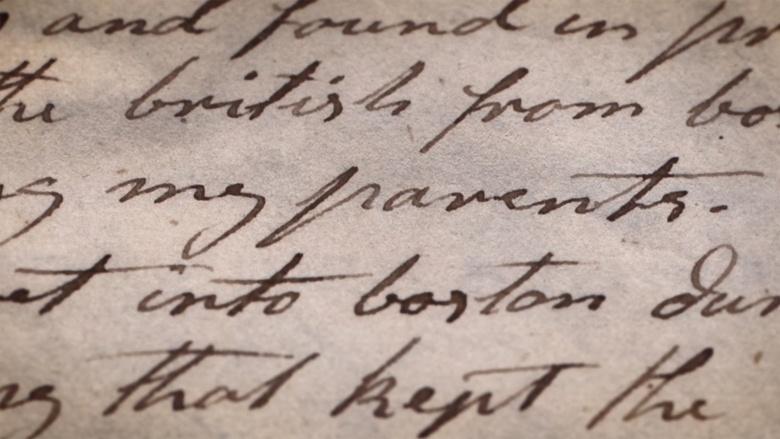 and found in pr
the british from bo
g my parents.
et into boston dur
ng that kept the